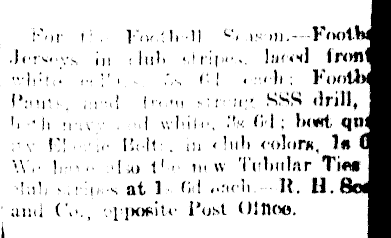 For the Football Season.—Footba
Jerseys in club stripes, laced front
white collars, 5s 6d each; Footba
Pants, made from strong SSS drill,
both navy and white, 3s 6d; best qua
ity Elastic Belts, in club colors, 1s 6
We have also the new Tubular Ties
club stripes at 1s 6d each.—R. H. Sco
and Co., opposite Post Office.